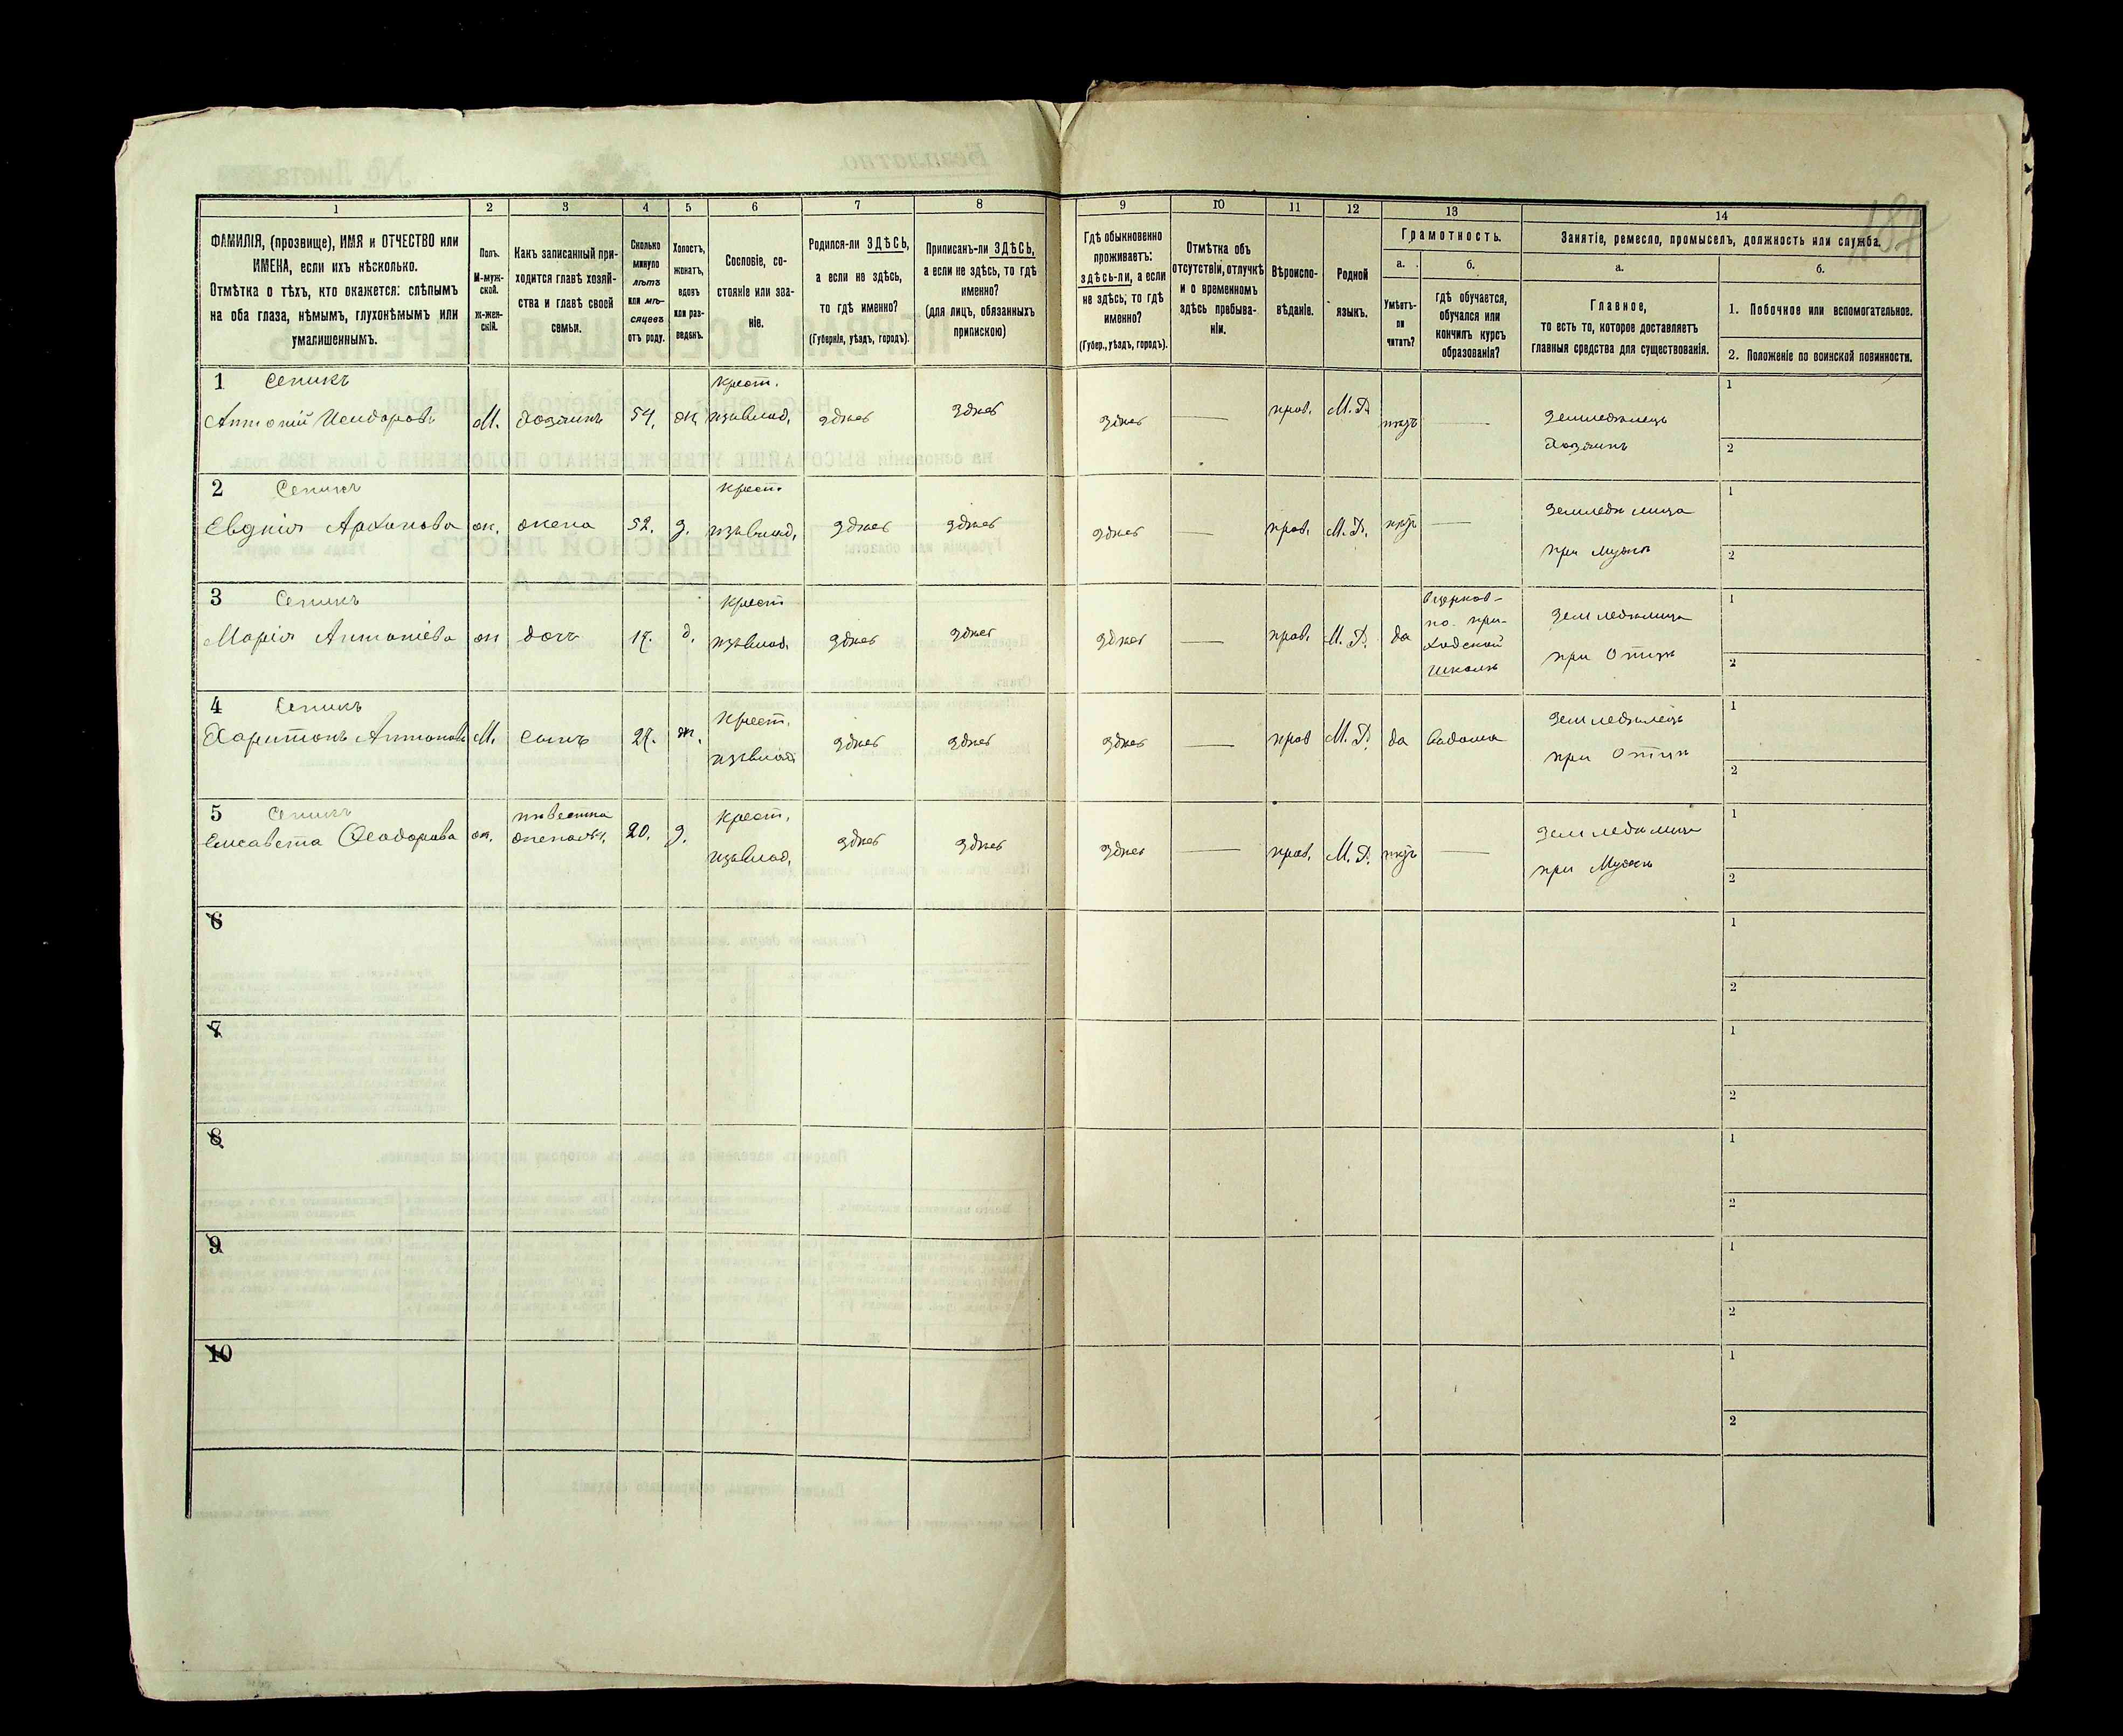 187
1
2
3
4
5
6
7
8
9
10
11
12
13
14
ФАМИЛІЯ, (прозвище), ИМЯ и ОТЧЕСТВО или
ИМЕНА, если ихъ нѣсколько.
Отмѣтка о тѣхъ, кто окажется: слѣпымъ
на оба глаза, нѣмымъ, глухонѣмымъ или
умалишеннымъ.
Полъ.
М-муж-
ской.
ж-жен-
скій.
Какъ записанный при-
ходится главѣ хозяй-
ства и главѣ своей
семьи.
Сколько
минуло
лѣтъ
или мѣ-
сяцевъ
отъ роду.
Холостъ,
женатъ,
вдовъ
или раз-
веденъ.
Сословіе, со-
стояніе или зва-
ніе.
Родился-ли ЗДѢСЬ,
а если не здѣсь,
то гдѣ именно?
(Губернія, уѣздъ, городъ).
Приписанъ-ли ЗДѢСЬ,
а если не здѣсь, то гдѣ
именно?
(для лицъ, обязанныхъ
припискою)
Гдѣ обыкновенно
проживаетъ:
здѣсь-ли, а если
не здѣсь, то гдѣ
именно?
(Губер., уѣздъ, городъ).
Отмѣтка объ
отсутствіи, отлучкѣ
и о временномъ
здѣсь пребыва-
ніи.
Вѣроиспо-
вѣданіе.
Родной
языкъ.
Грамотность.
а.
Умѣетъ-
ли
читать?
б.
гдѣ обучается,
обучался или
кончилъ курсъ
образованія?
Занятіе, ремесло, промыселъ, должность или служба.
а.
Главное,
то есть то, которое доставляетъ
главныя средства для существованія.
б.
1. Побочное или вспомогательное.
2. Положеніе по воинской повинности.
1 Сепикъ
Антоній Исидоровъ М. хозяинъ 54. ж. крест. здѣсь здѣсь здѣсь — прав. М. Р. нѣтъ — Земледѣлецъ
хозяинъ
1
2
2 Сепикъ
Евдкія Архипова ж. жена 52. з. крест. здѣсь здѣсь здѣсь — прав. М. Р. нѣтъ — Земледѣлица
при мужѣ
1
2
3 Сепикъ
Марія Антоніева ж дочь 17. д. крест здѣсь здѣсь здѣсь — прав. М. Р. да
Вцерков-
но-при-
ходской
школѣ
Земледѣлица
при Отцѣ
1
2
4 Сепикъ
Харитонъ Антоновъ М. сынъ 27. ж. Крест. здѣсь здѣсь здѣсь — прав М. Р. да Вдома Земледѣлецъ
при Отцѣ
1
2
5 Сепикъ
Елисавета Ѳеодорова ж. невестка 20. з. Крест. здѣсь здѣсь здѣсь — прав. М. Р. нѣтъ — Земледѣлица
при Мужѣ
1
2
6
1
2
7
1
2
8
1
2
9
1
2
10
1
2